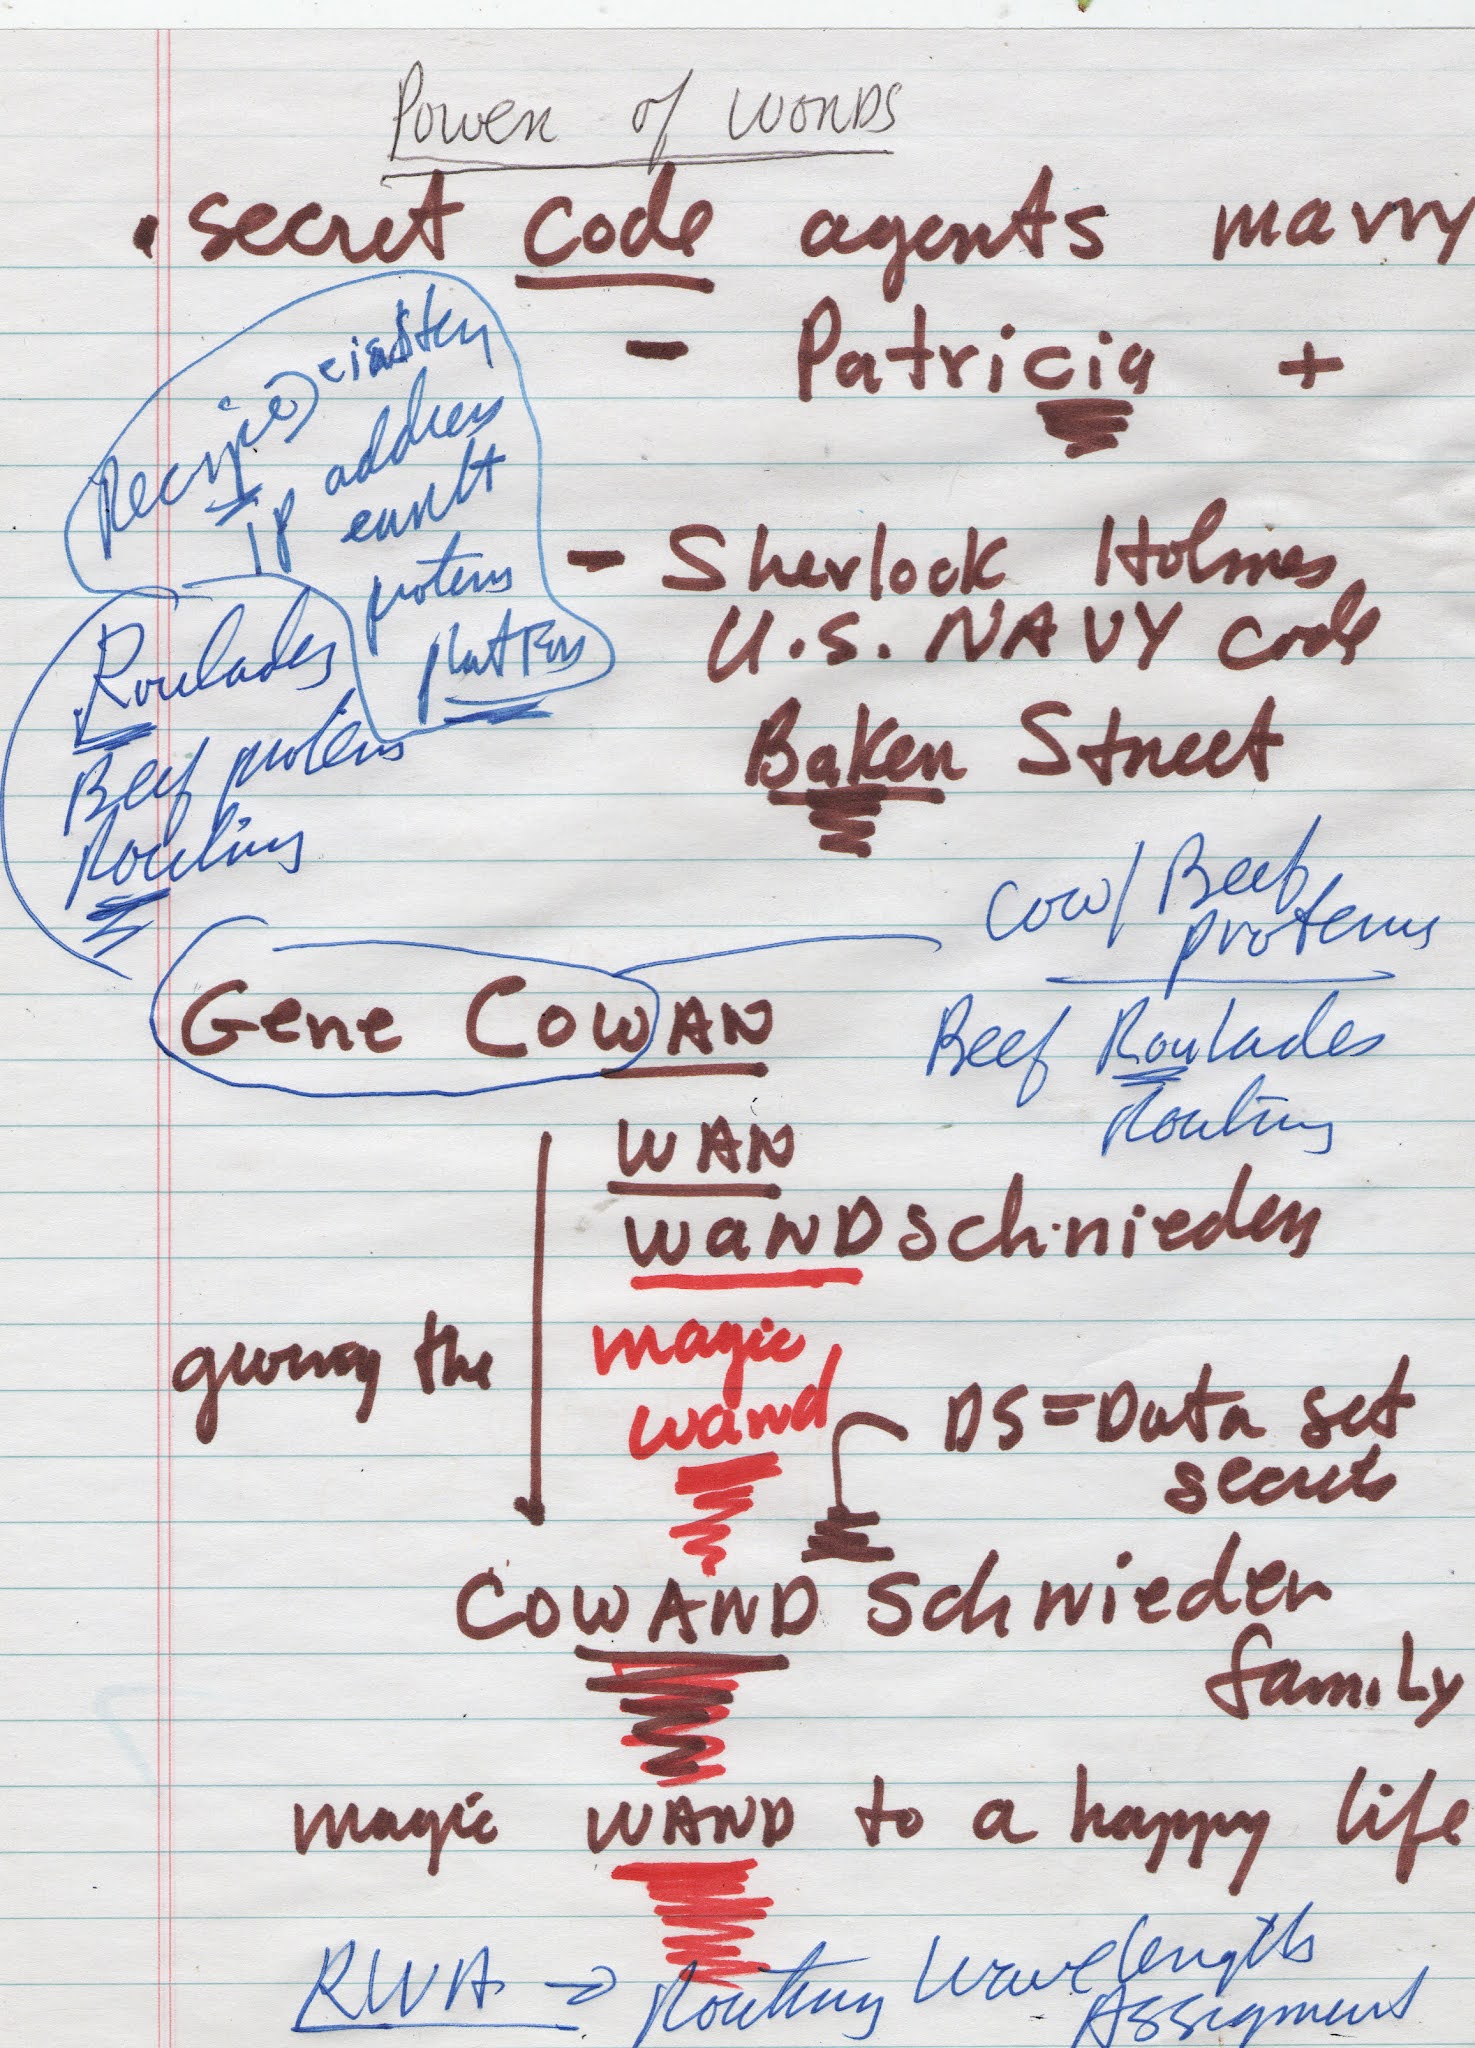 Power of WORDS
• secret code agents marry
- Patricia +
Recipie
IP address
earth
proteins
- Sherlock Holmes
U.S. NAVY code
Baker Street
Roulades
Beef proteins
Routing
Cow/Beef
proteins
Gene CowAN
Beef Roulades
Routing
WAN
WANDschnieders
giving the
magic
wand
DS = Data set
secrets
CoWAND Schnieder
family
magic WAND to a happy life
RWA → Routing Wavelength
Assignment